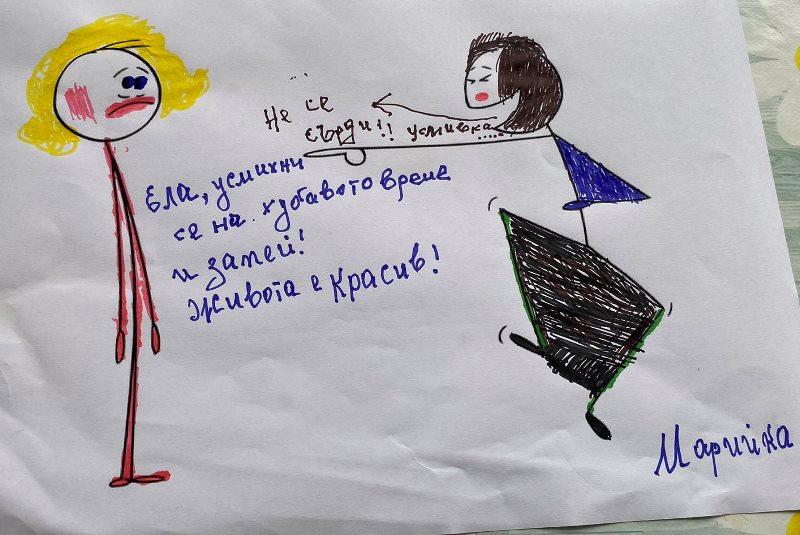 Не се
сърди!! усмивка.....
Ела, усмихни
се на хубавото време
и запей!
Живота е красив!
Марийка